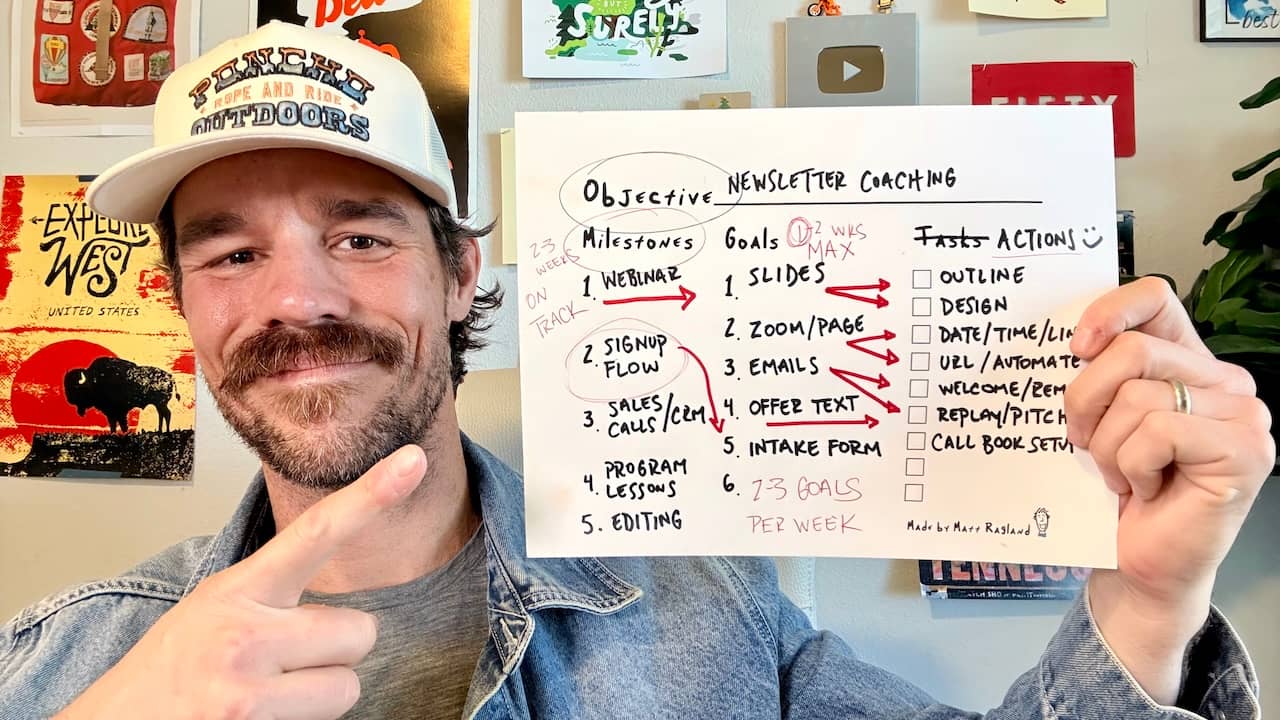 PONCHO
ROPE AND RIDE
OUTDOORS
EXPLORE
WEST
UNITED STATES
BUT
SURELY
best
FIFTY
Objective NEWSLETTER COACHING
2-3
WEEKS
ON
TRACK
Milestones
1. WEBINAR
2. SIGNUP
FLOW
3. SALES/CRM
CALLS
4. PROGRAM
LESSONS
5. EDITING
Goals
1-2 WKS
MAX
1. SLIDES
2. ZOOM/PAGE
3. EMAILS
4. OFFER TEXT
5. INTAKE FORM
6. 2-3 GOALS
PER WEEK
Tasks ACTIONS
OUTLINE
DESIGN
DATE/TIME/LIN
URL/AUTOMATE
WELCOME/REM
REPLAY/PITCH
CALL BOOK SETU
Made by Matt Ragland
TENNES